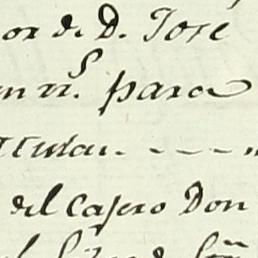 or de D. José
en nS. para
titular. - - - - "
del Casero Don